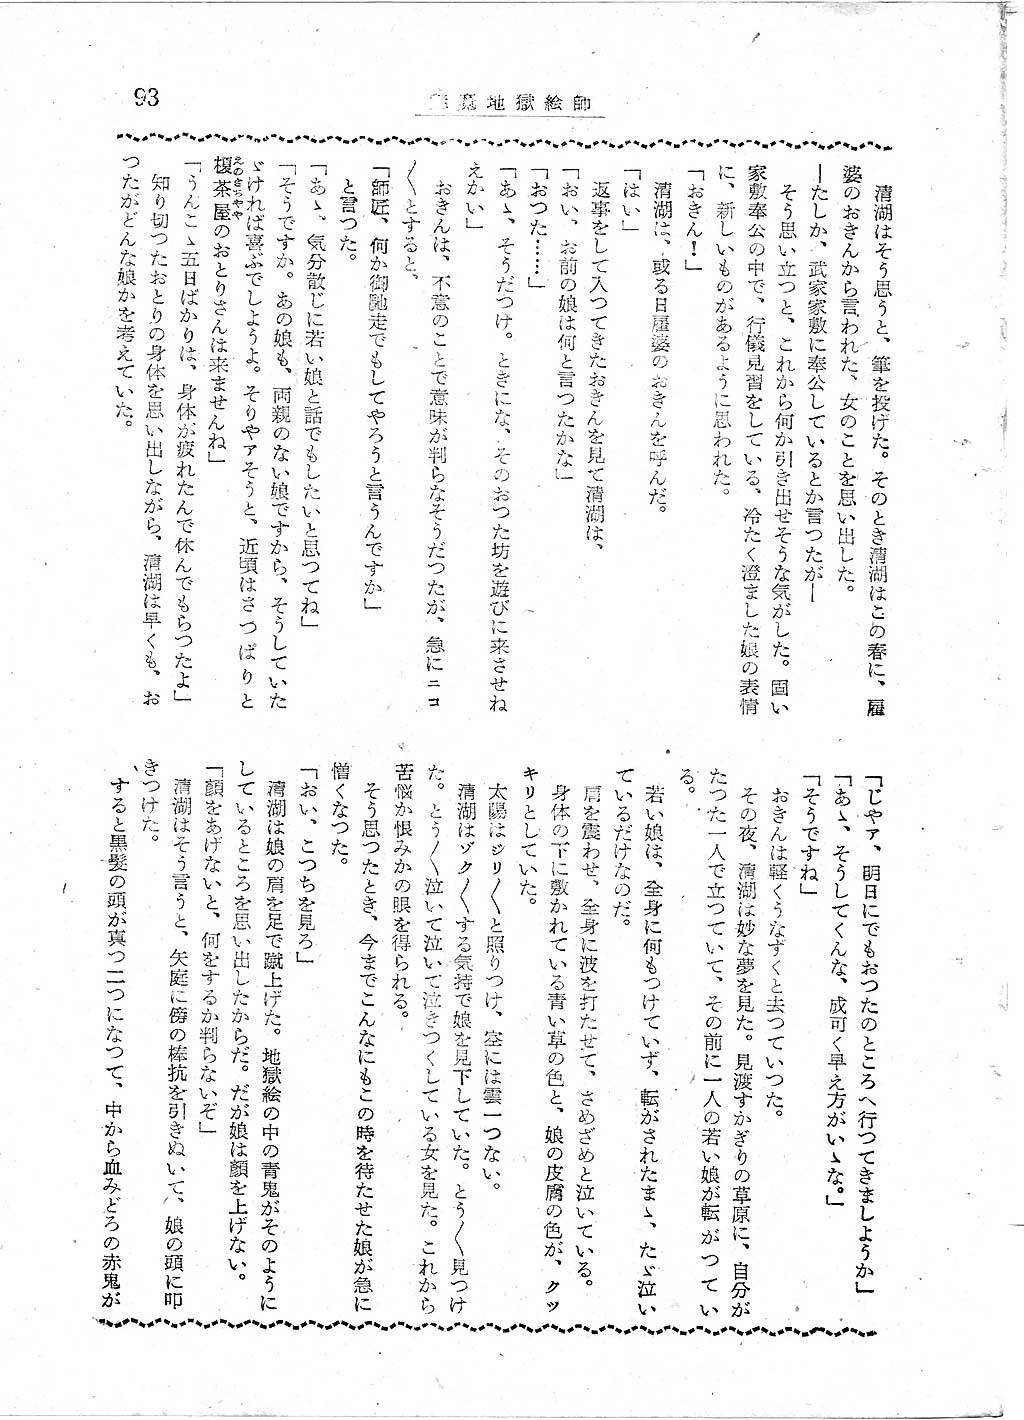 93
地獄絵師
清湖はそう思うと、筆を投げた。そのとき清湖はこの春に、雇
婆のおきんから言われた、女のことを思い出した。
―たしか、武家家敷に奉公しているとか言つたが―
そう思い立つと、これから何か引き出せそうな気がした。固い
家敷奉公の中で、行儀見習をしている、冷たく澄ました娘の表情
に、新しいものがあるように思われた。
「おきん！」
清湖は、或る日雇婆のおきんを呼んだ。
「はい」
返事をして入つてきたおきんを見て清湖は、
「おい、お前の娘は何と言つたかな」
「おつた……」
「あゝ、そうだつけ。ときにな、そのおつた坊を遊びに来させね
えかい」
おきんは、不意のことで意味が判らなそうだつたが、急にニコ
〳〵とすると、
「師匠、何か御馳走でもしてやろうと言うんですか」
と言つた。
「あゝ、気分散じに若い娘と話でもしたいと思つてね」
「そうですか。あの娘も、両親のない娘ですから、そうしていた
ゞければ喜ぶでしようよ。そりやァそうと、近頃はさつぱりと
榎茶屋のおとりさんは来ませんね」
えのきぢやや
「うんこゝ五日ばかりは、身体が疲れたんで休んでもらつたよ」
知り切つたおとりの身体を思い出しながら、清湖は早くも、お
つたがどんな娘かを考えていた。
「じやァ、明日にでもおつたのところへ行つてきましようか」
「あゝ、そうしてくんな、成可く早え方がいゝな。」
「そうですね」
おきんは軽くうなずくと去つていつた。
その夜、清湖は妙な夢を見た。見渡すかぎりの草原に、自分が
たつた一人で立つていて、その前に一人の若い娘が転がつてい
る。
若い娘は、全身に何もつけていず、転がされたまゝ、たゞ泣い
ているだけなのだ。
肩を震わせ、全身に波を打たせて、さめざめと泣いている。
身体の下に敷かれている青い草の色と、娘の皮膚の色が、クッ
キリとしていた。
太陽はジリ〳〵と照りつけ、空には雲一つない。
清湖はゾク〳〵する気持で娘を見下していた。とう〳〵見つけ
た。とう〳〵泣いて泣いて泣きつくしている女を見た。これから
苦悩か恨みかの眼を得られる。
そう思つたとき、今までこんなにもこの時を待たせた娘が急に
憎くなつた。
「おい、こつちを見ろ」
清湖は娘の肩を足で蹴上げた。地獄絵の中の青鬼がそのように
しているところを思い出したからだ。だが娘は顔を上げない。
「顔をあげないと、何をするか判らないぞ」
清湖はそう言うと、矢庭に傍の棒抗を引きぬいて、娘の頭に叩
きつけた。
、すると黒髪の頭が真つ二つになつて、中から血みどろの赤鬼が